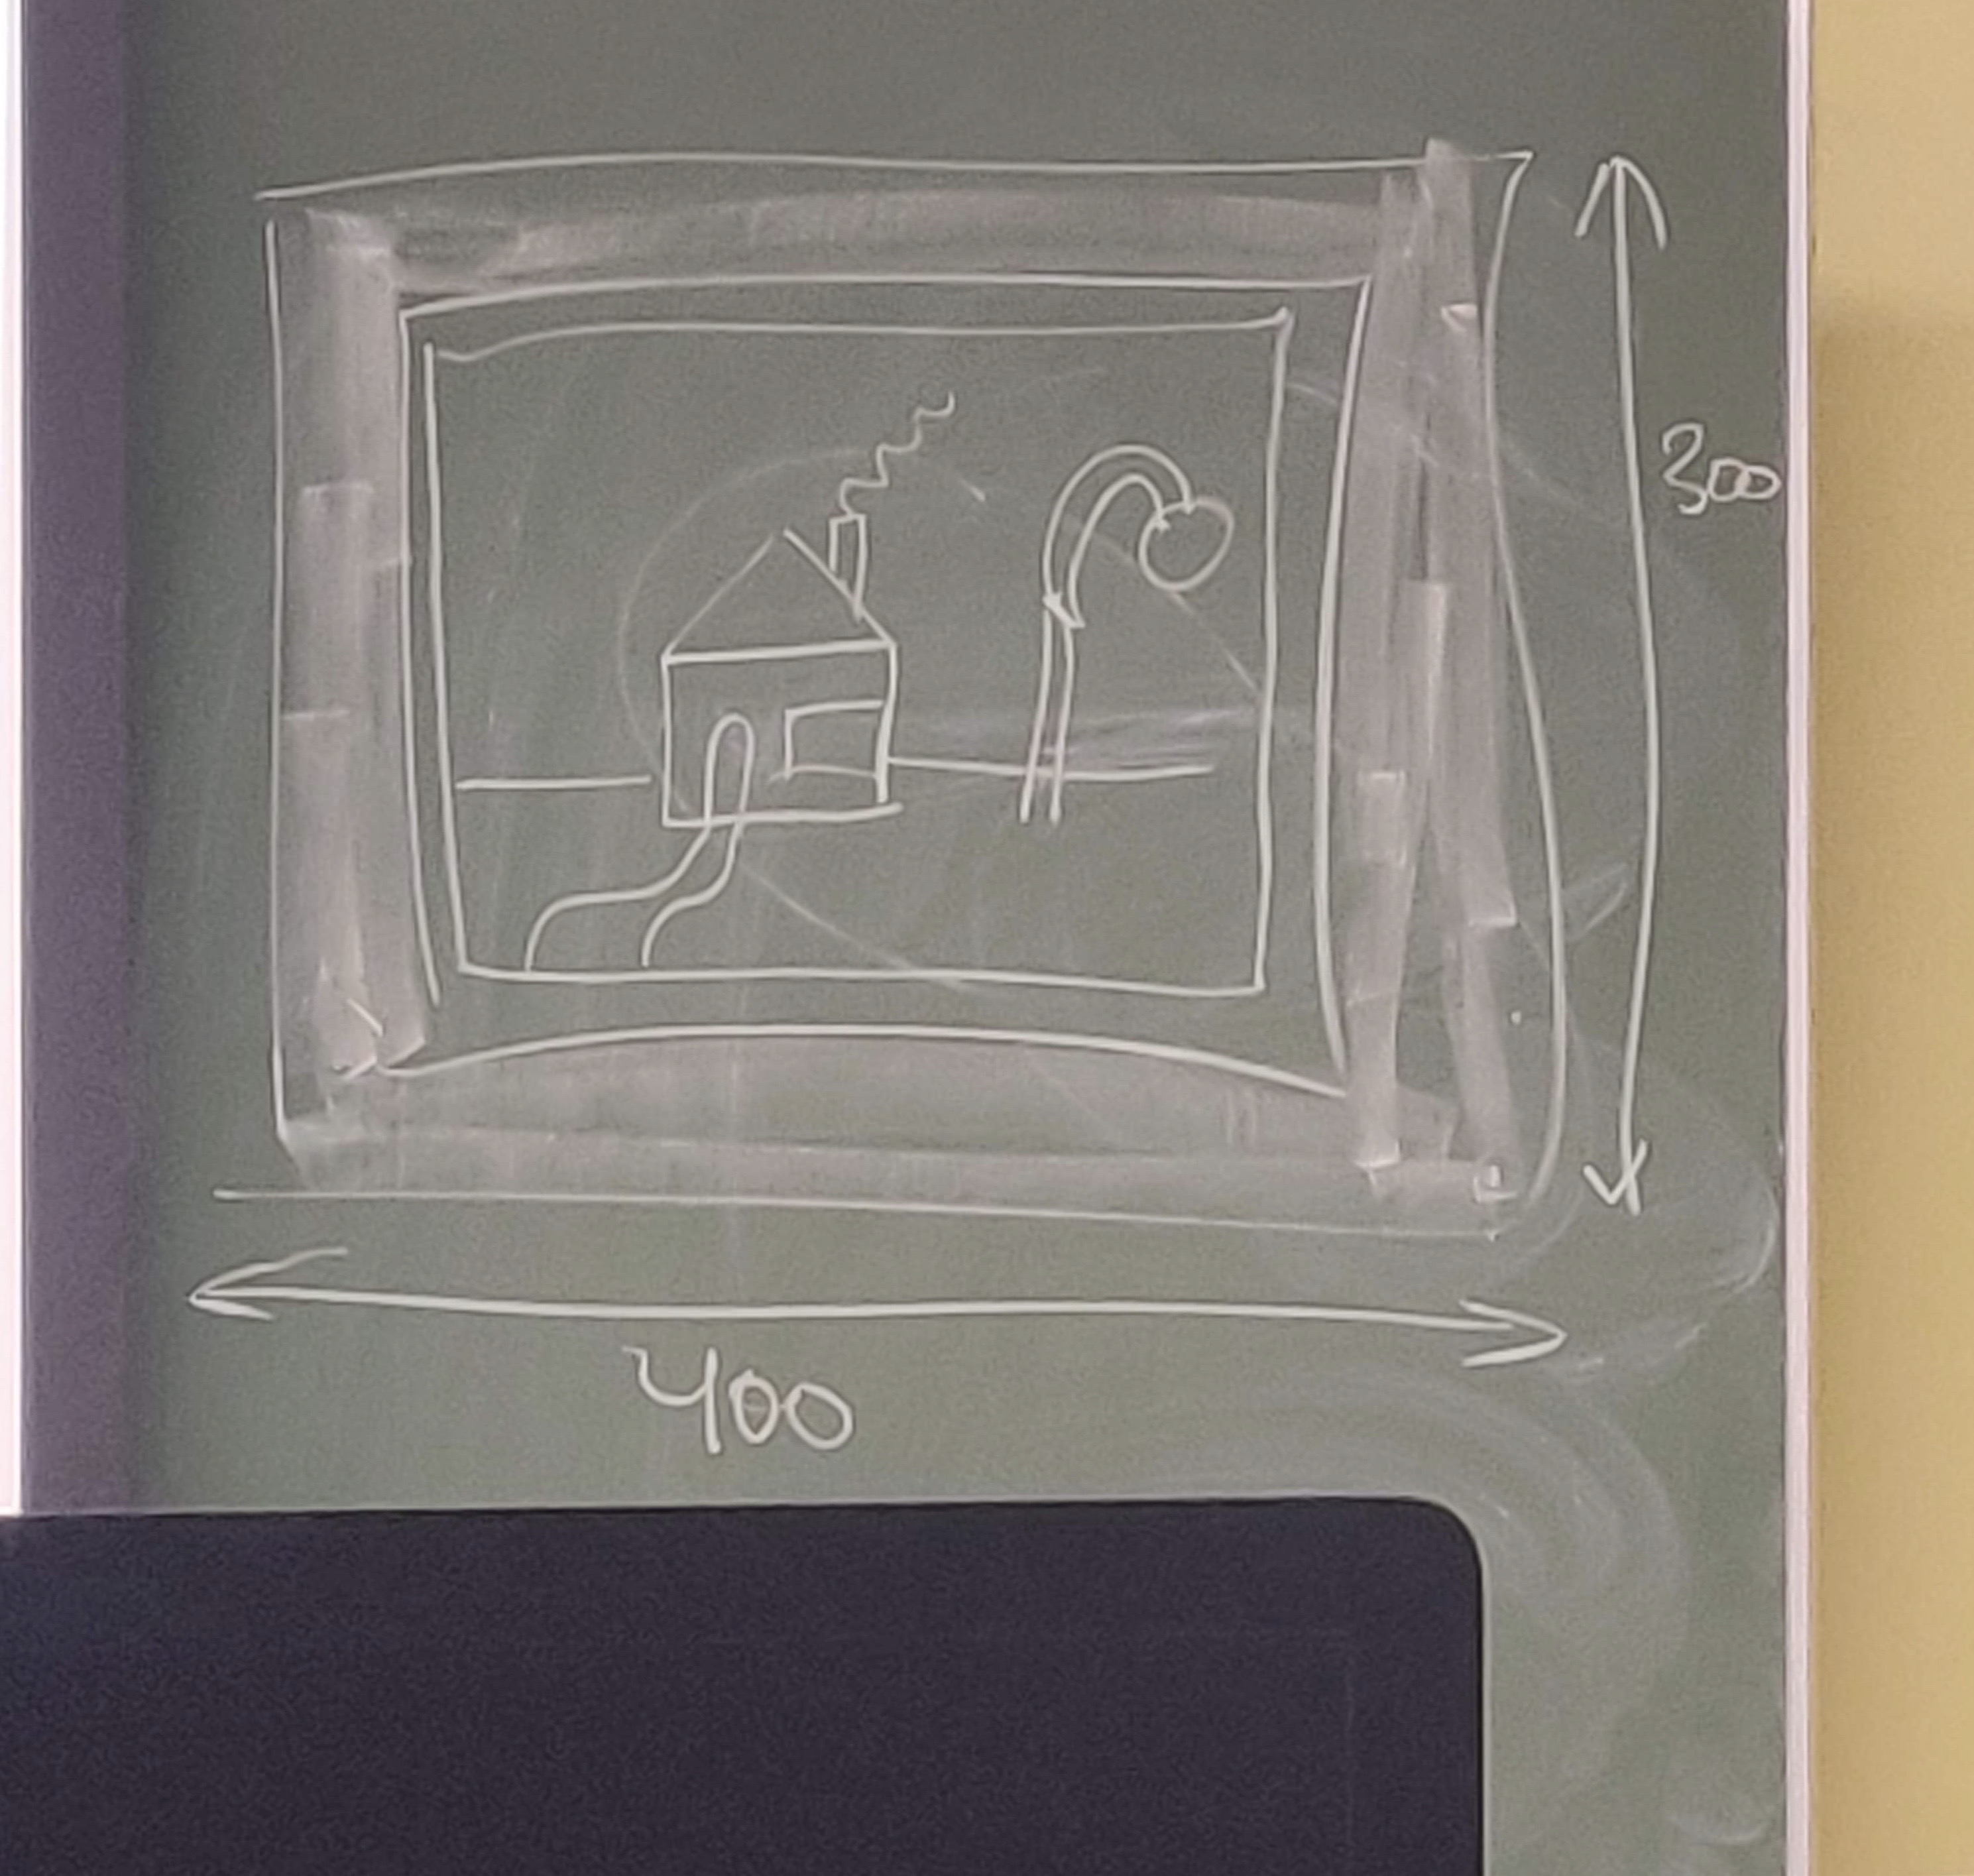 300
400